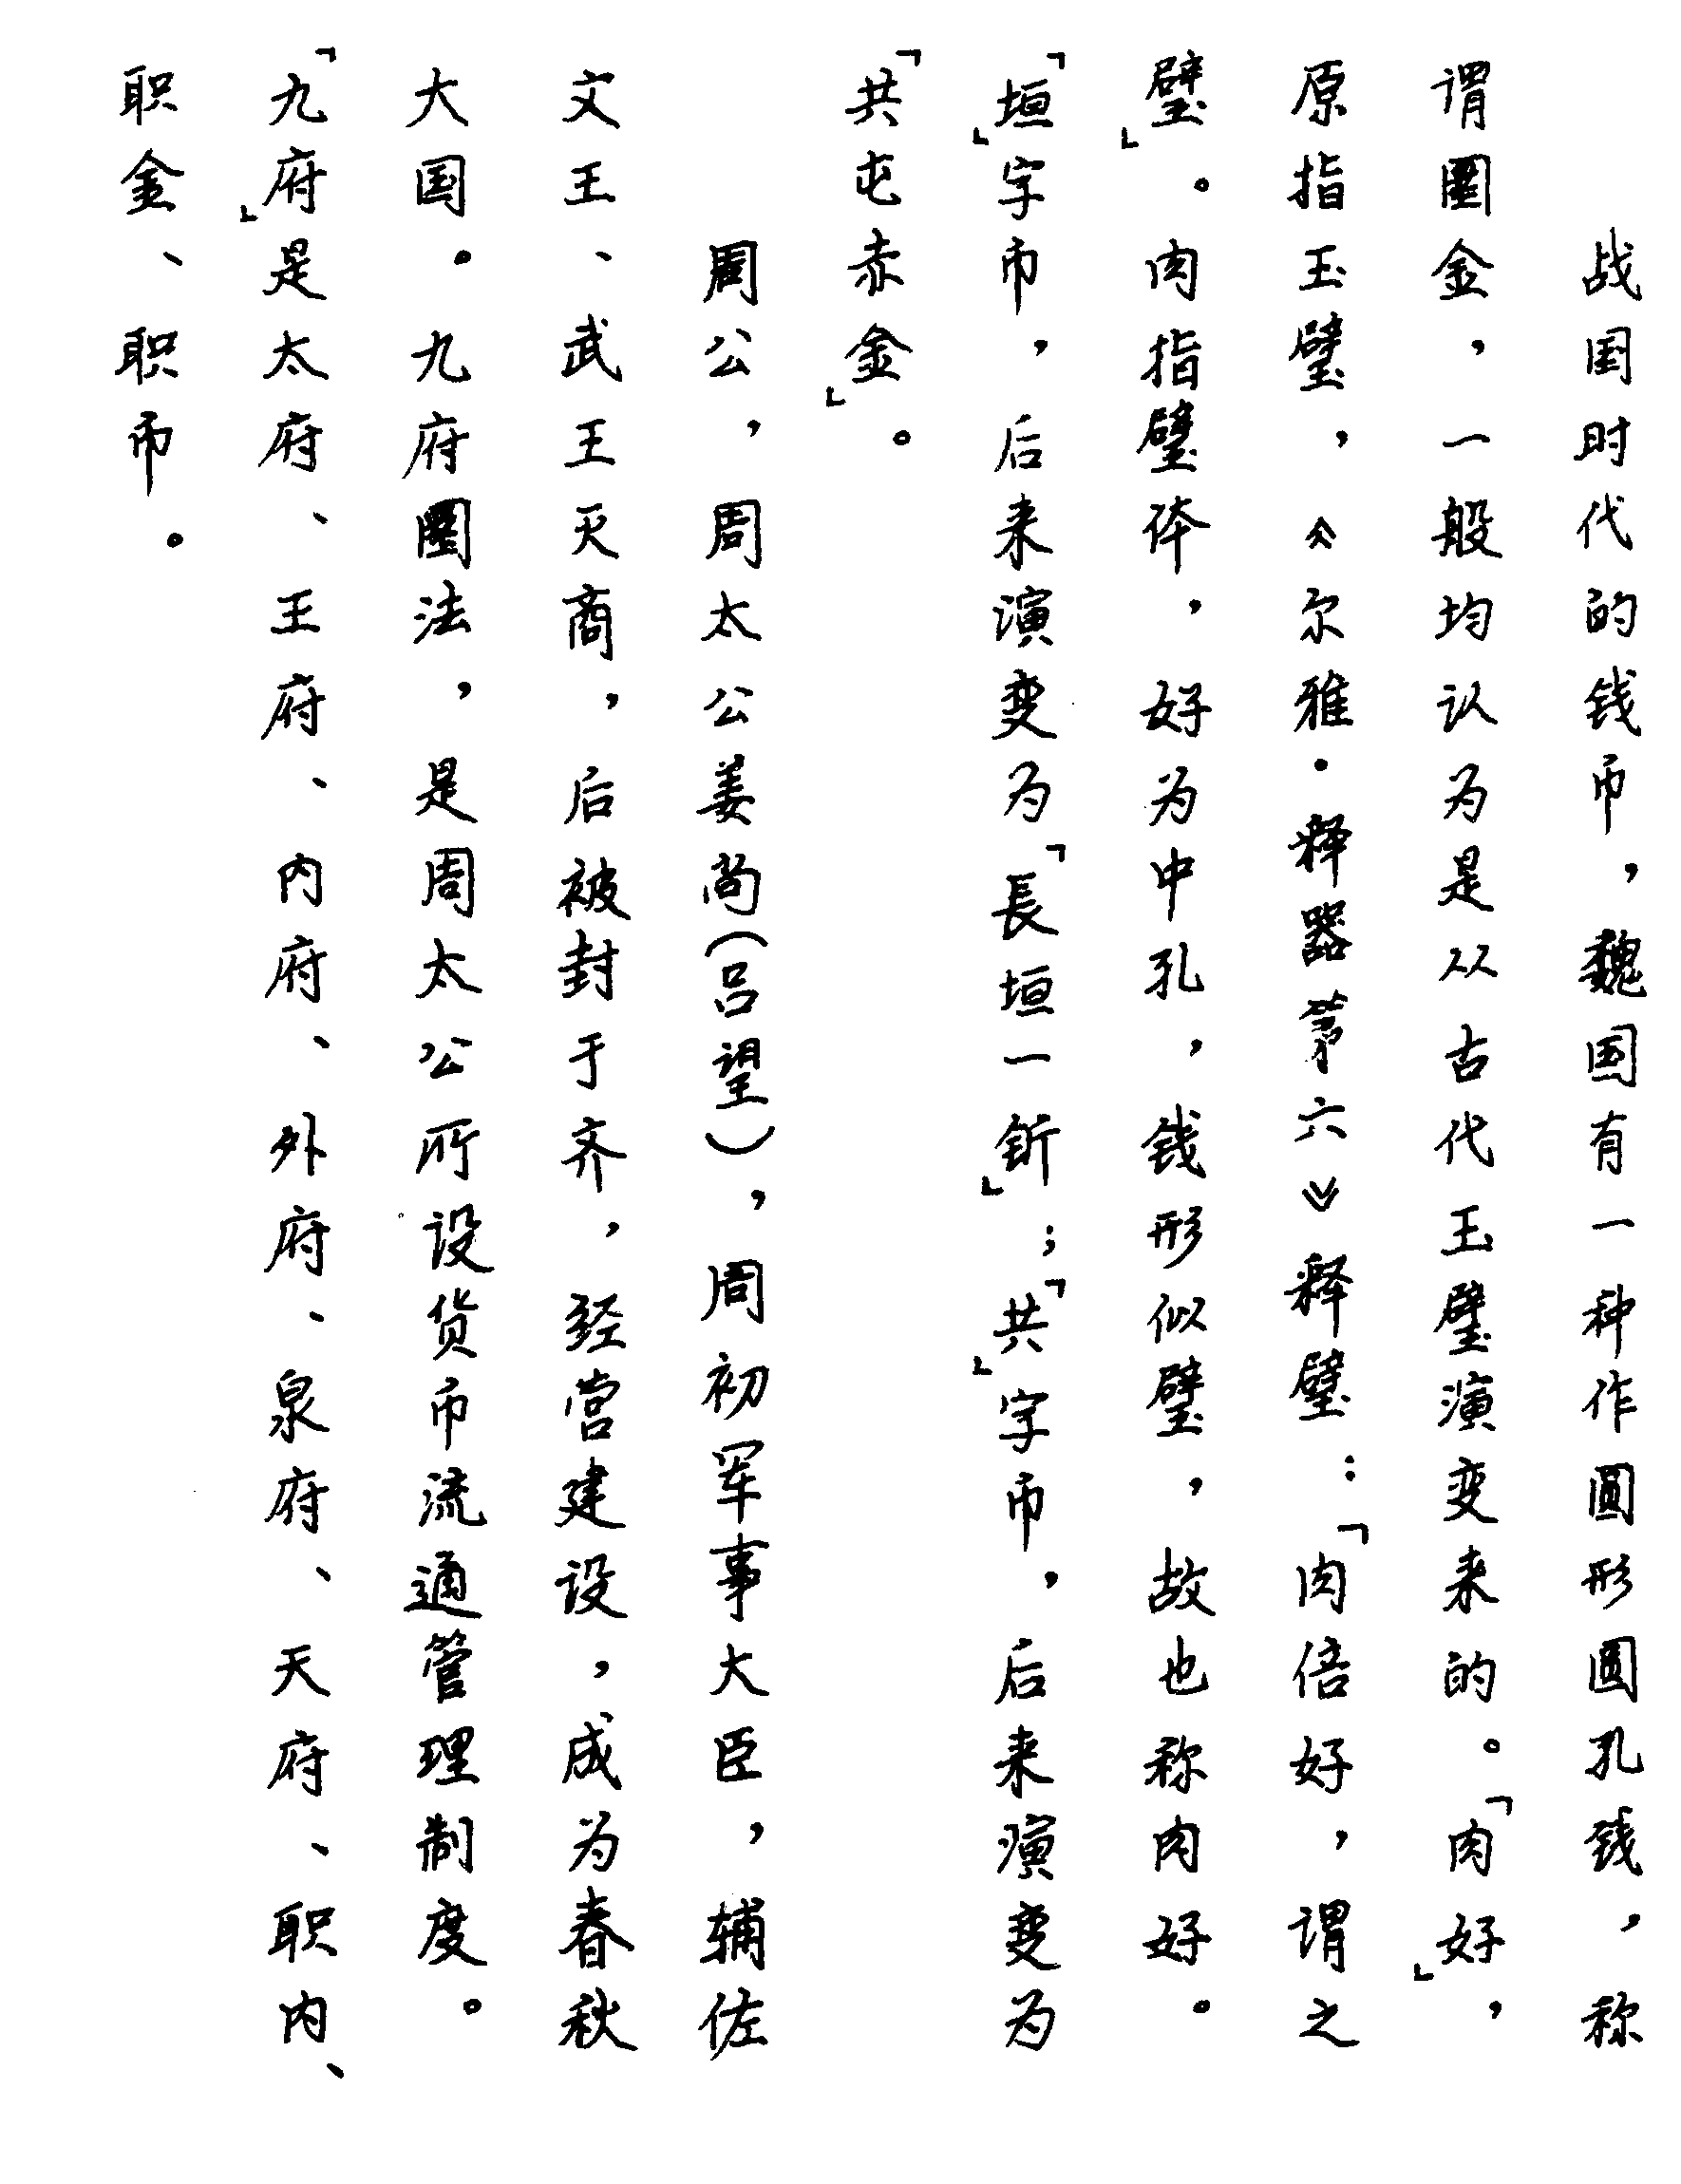 战国时代的钱币，魏国有一种作圆形圆孔钱，称
谓圜金，一般均认为是从古代玉璧演变来的。「肉好」，
原指玉璧，《尔雅·释器第六》释璧：「肉倍好，谓之
璧」。肉指璧体，好为中孔，钱形似璧，故也称肉好。
「垣」字币，后来演变为「長垣一釿」；「共」字币，后来演变为
「共屯赤金」。
周公，周太公姜尚（吕望），周初军事大臣，辅佐
文王、武王灭商，后被封于齐，经营建设，成为春秋
大国。九府圜法，是周太公所设货币流通管理制度。
「九府」是太府、王府、内府、外府、泉府、天府、职内、
职金、职币。